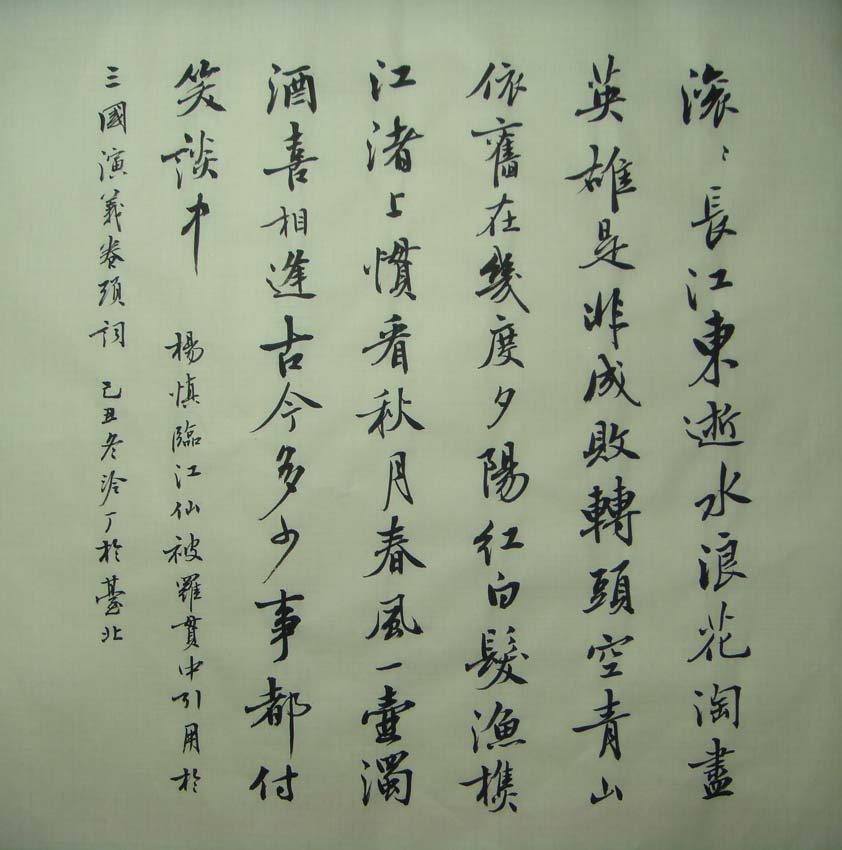 滾〻長江東逝水浪花淘盡
英雄是非成敗轉頭空青山
依舊在幾度夕陽紅白髮漁樵
江渚上慣看秋月春風一壺濁
酒喜相逢古今多少事都付
笑談中 楊慎臨江仙被羅貫中引用於
三國演義卷頭詞 己丑冬泠丁於臺北